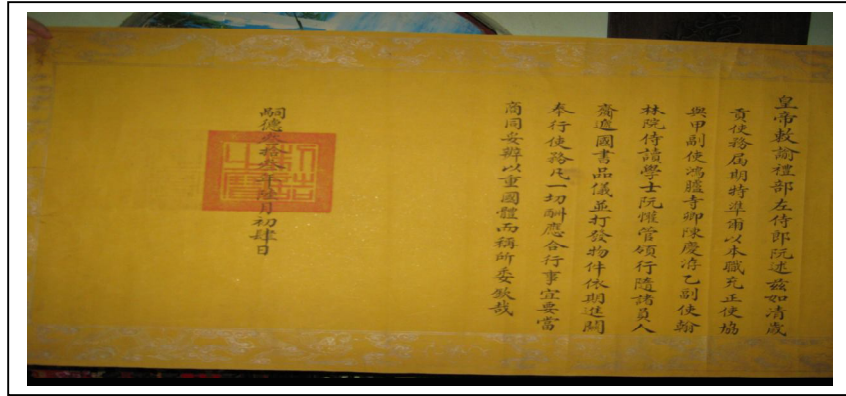 皇帝敕諭禮部左侍郎阮述茲如清歲
貢使務屆期特準爾以本職充正使協
與甲副使鴻臚寺卿陳慶洊乙副使翰
林院侍讀學士阮懽管領行隨諸員人
齎遞國書品儀並打發物件依期進關
奉行使務凡一切酬應合行事宜要當
商同妥辦以重國體而稱所委欽哉
嗣德叁拾叁年陸月初肆日